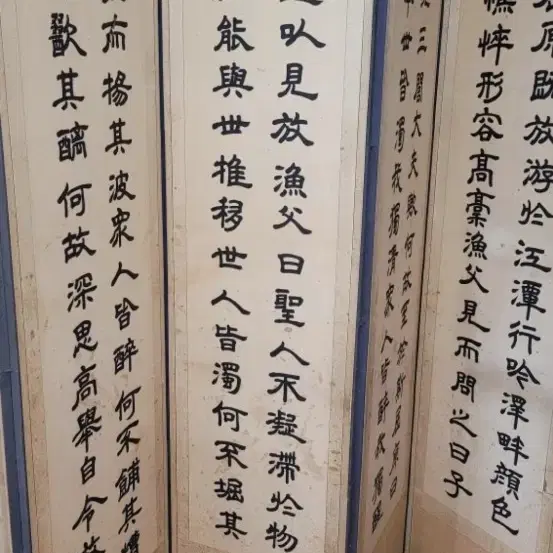 原既放游於江潭行吟澤畔顏色
憔悴形容高槀漁父見而問之曰子
三閭大夫歟何故至於斯屈原曰
世皆濁我獨清衆人皆醉我獨醒
以見放漁父曰聖人不凝滯於物
能與世推移世人皆濁何不堀其
而揚其波衆人皆醉何不餔其糟
歠其醨何故深思高舉自令放